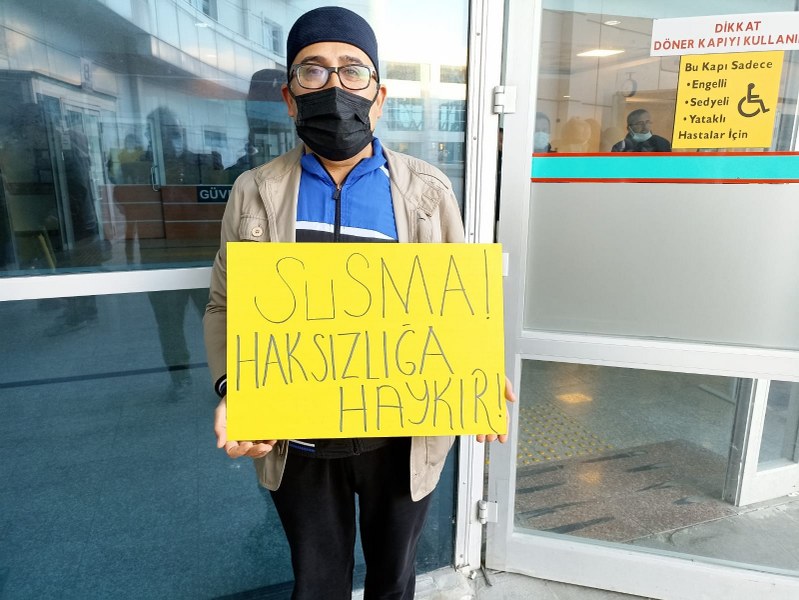 DİKKAT
DÖNER KAPIYI KULLANI
Bu Kapı Sadece
• Engelli
• Sedyeli
• Yataklı
Hastalar İçin
GÜVE
SUSMA!
HAKSIZLIĞA
HAYKIR!